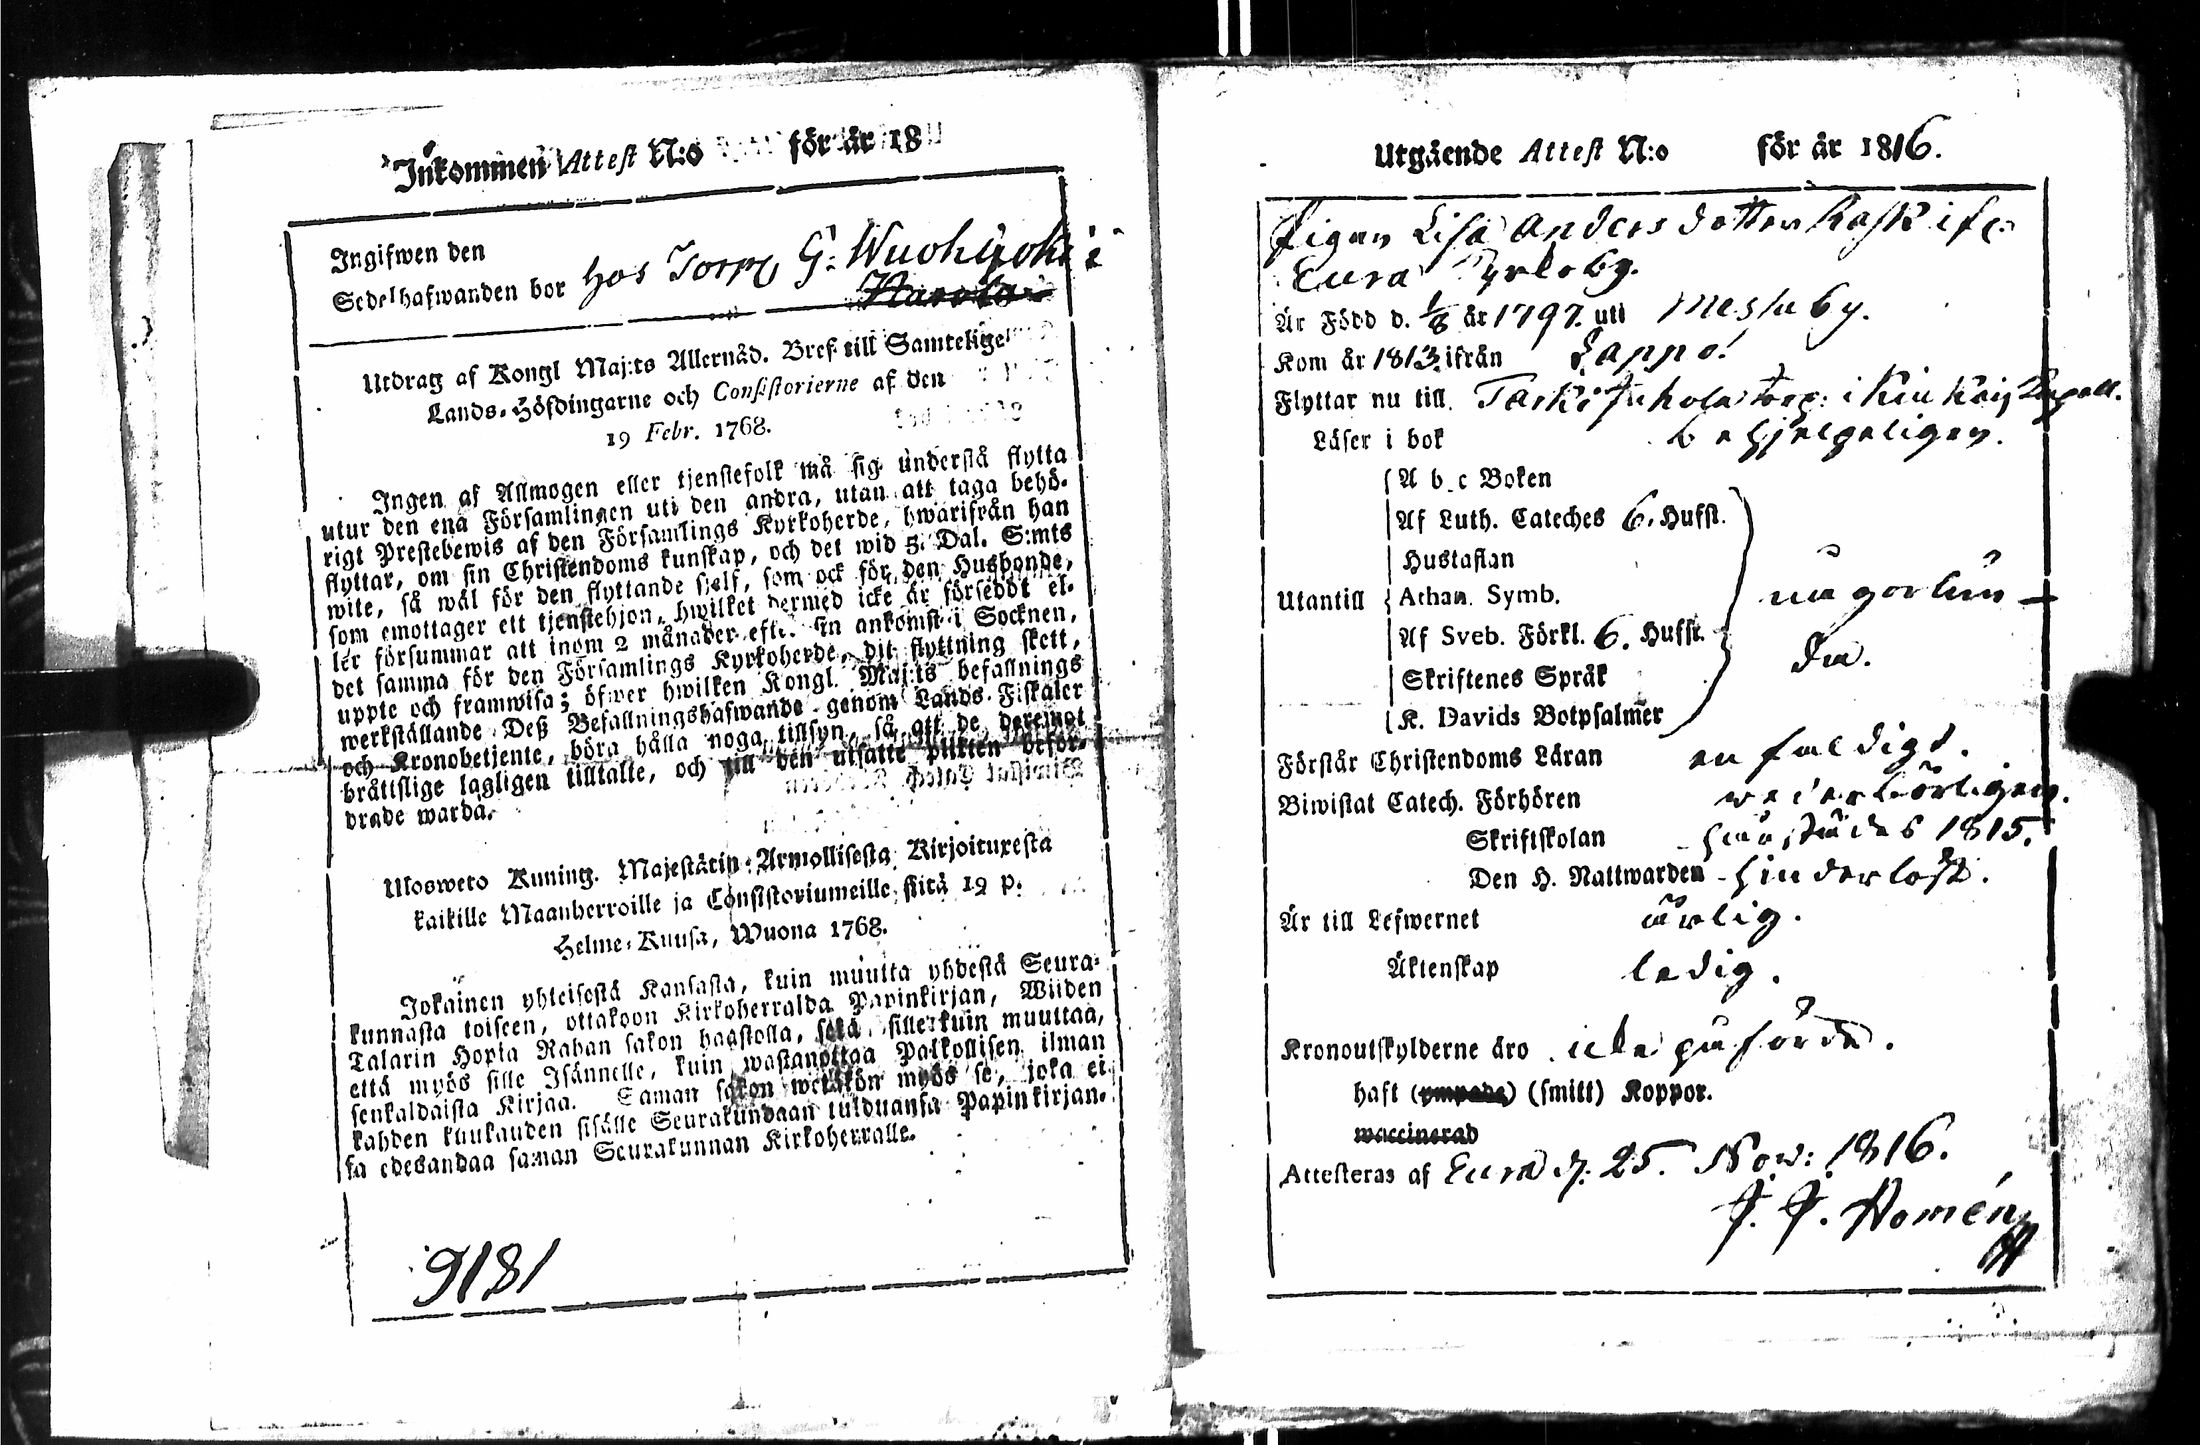 Inkommen Attest N:o för år 18
Ingifwen den
Sedelhafwanden bor hos Torp G: Wuohijoki i
Utdrag af Kongl Maj:ts Allernåd. Bref till Samtelige
Lands-Höfdingarne och Consistorierne af den
19 Febr. 1768.
Ingen af Allmogen eller tjenstefolk må sig understå flytta
utur den ena Församlingen uti den andra, utan att taga behö-
rigt Prestebewis af den Församlings Kyrkoherde, hwarifrån han
flyttar, om sin Christendoms kunskap, och det wid 5. Dal. S:mts
wite, så wäl för den flyttande sjelf, som ock för den Husbonde,
som emottager ett tjenstehjon, hwilket dermed icke är förseddt el-
ler försummar att inom 2 månader efter sin ankomst i Socknen,
det samma för den Församlings Kyrkoherde, dit flyttning skett,
uppte och framwisa; öfwer hwilken Kongl. Maj:ts befallnings
werkställande Deß Befallningshafwande genom Lands-Fiskaler
och Kronobetjente, böra hålla noga tillsyn, så att de deremot
bråttslige lagligen tilltalte, och till den utsatte plikten beför-
drade warda.
Ulosweto Kuning. Majestätin Armollisesta Kirjoituxesta
kaikille Maanherroille ja Consistoriumeille, siitä 19 p.
Helme-Kuusa, Wuona 1768.
Jokainen yhteisestä Kansasta, kuin muutta yhdestä Seura-
kunnasta toiseen, ottakoon Kirkoherralda Papinkirjan, Wiiden
Talarin Hopia Rahan sakon haastolla, sekä sille kuin muuttaa,
että myös sille Isännelle, kuin wastanottaa Palkollisen ilman
senkaldaista Kirjaa. Saman sakon wetäkön myös se, joka ei
kahden kuukauden sisälle Seurakundaan tulduansa Papinkirjan-
sa edesandaa saman Seurakunnan Kirkoherralle.
9181
Utgående Attest N:o för år 1816.
Pigan Lisa Andersdotter Rask ifr:
Eura Kyrkoby.
Är Född d. 1/8 år 1797. uti Messuby.
Kom år 1813. ifrån Lappo.
Flyttar nu till torp: i Kiukais Capell.
Läser i bok behjelpeligen.
A b c Boken
Af Luth. Cateches 6. Hufst.
Hustaflan
Utantill Athan. Symb. någorlun-
Af Sveb. Förkl. 6. Hufst.
da.
Skriftenes Språk
K. Davids Botpsalmer
Förstår Christendoms Läran enfaldigt.
Biwistat Catech. Förhören wederbörligen.
Skriftskolan 1815.
Den H. Nattwarden hinderlöst.
Är till Lefwernet ärlig.
Äktenskap ledig.
Kronoutskylderne äro icke påförda.
haft (ympade) (smitt) Koppor.
waccinerad
Attesteras af Eura d. 25. Nov: 1816.
J. J. Homén